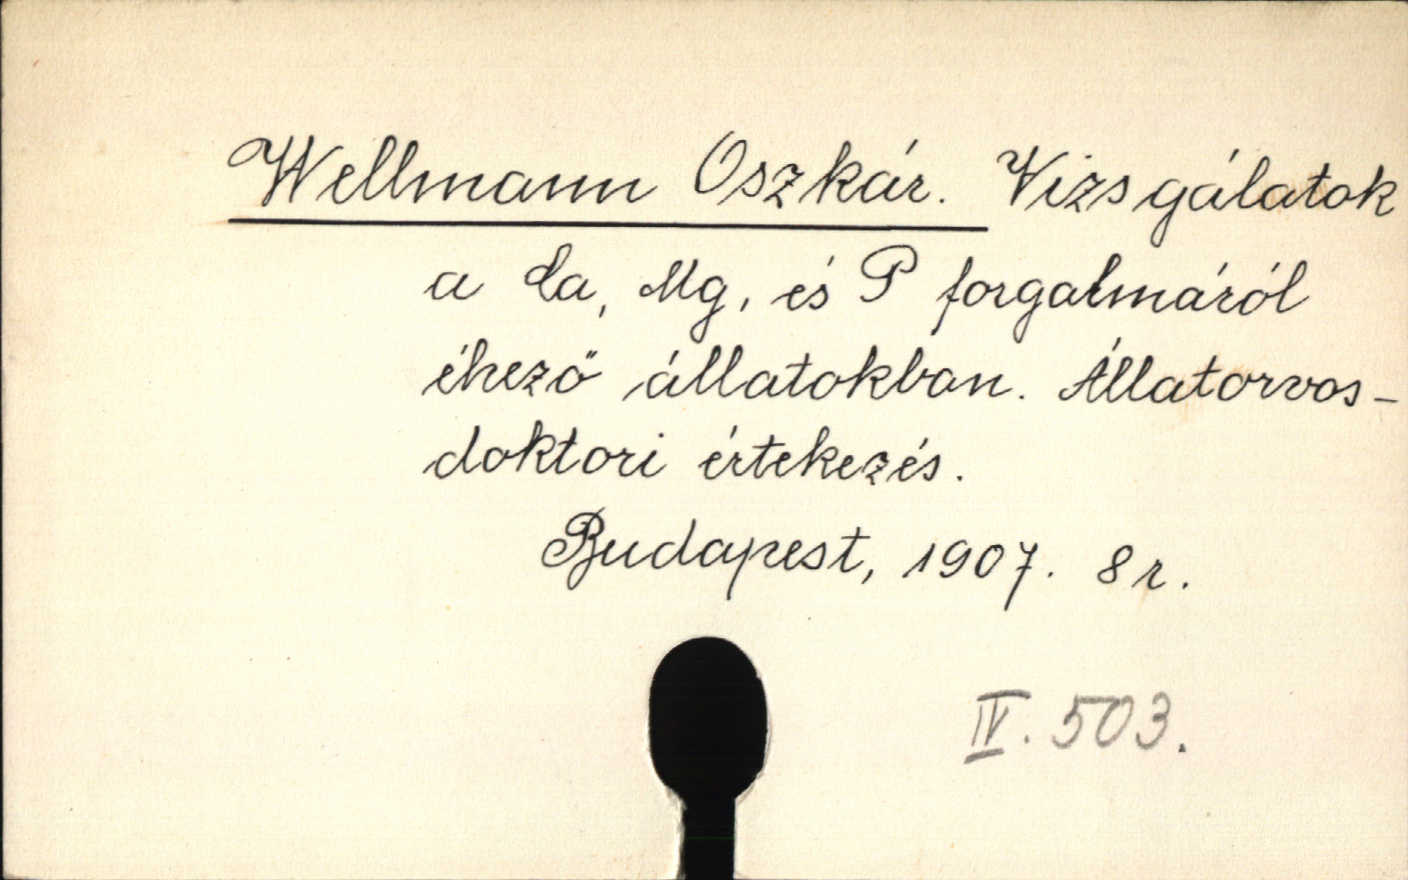 Wellmann Oszkár. Vizsgálatok
a Ca, Mg, és P forgalmáról
éhező állatokban. Állatorvos-
doktori értekezés.
Budapest, 1907. 8r.
IV. 503.